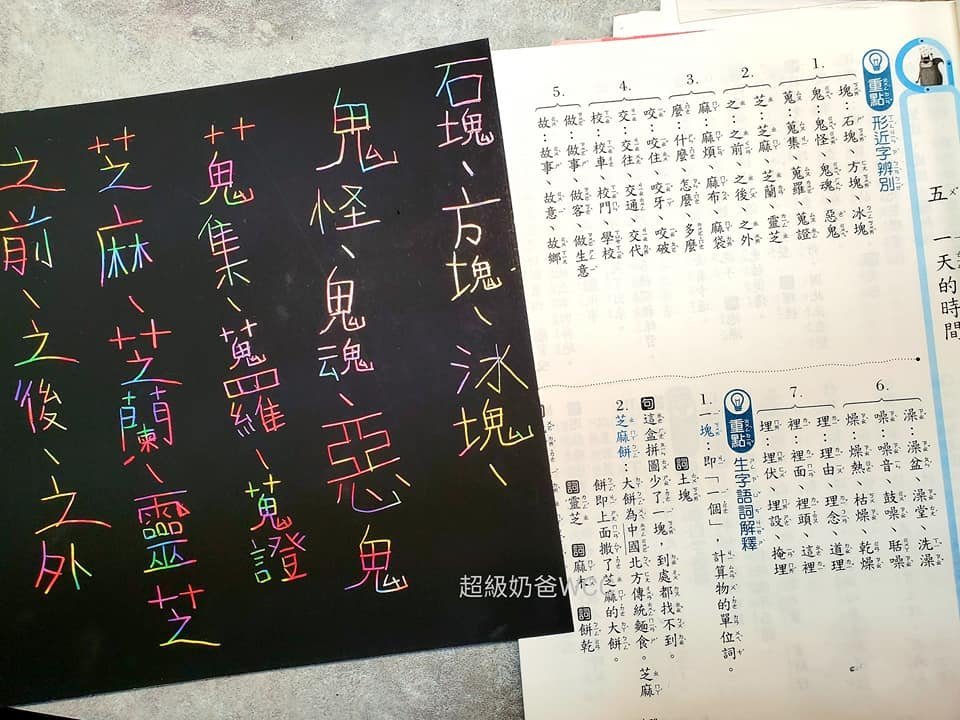 石塊、方塊、冰塊、
鬼怪、鬼魂、惡鬼
蒐集、蒐羅、蒐證
芝麻、芝蘭、靈芝
之前、之後、之外
五
一天的時間
重點
形近字辨別
1.
塊：石塊、方塊、冰塊
鬼：鬼怪、鬼魂、惡鬼
蒐：蒐集、蒐羅、蒐證
2.
芝：芝麻、芝蘭、靈芝
之：之前、之後、之外
3.
麻：麻煩、麻布、麻袋
麼：什麼、怎麼、多麼
4.
咬：咬住、咬牙、咬破
交：交往、交通、交代
校：校車、校門、學校
5.
做：做事、做客、做生意
故：故事、故意、故鄉
6.
澡：澡盆、澡堂、洗澡
噪：噪音、鼓噪、聒噪
燥：燥熱、枯燥、乾燥
7.
理：理由、理念、道理
裡：裡面、裡頭、這裡
埋：埋伏、埋設、掩埋
重點
生字語詞解釋
1. 一塊：即「一個」，計算物的單位詞。
詞 土塊
句 這盒拼圖少了一塊，到處都找不到。
2. 芝麻餅：大餅為中國北方傳統麵食。芝麻
餅即上面撒了芝麻的大餅。
詞 靈芝 詞 麻木 詞 餅乾
超級奶爸